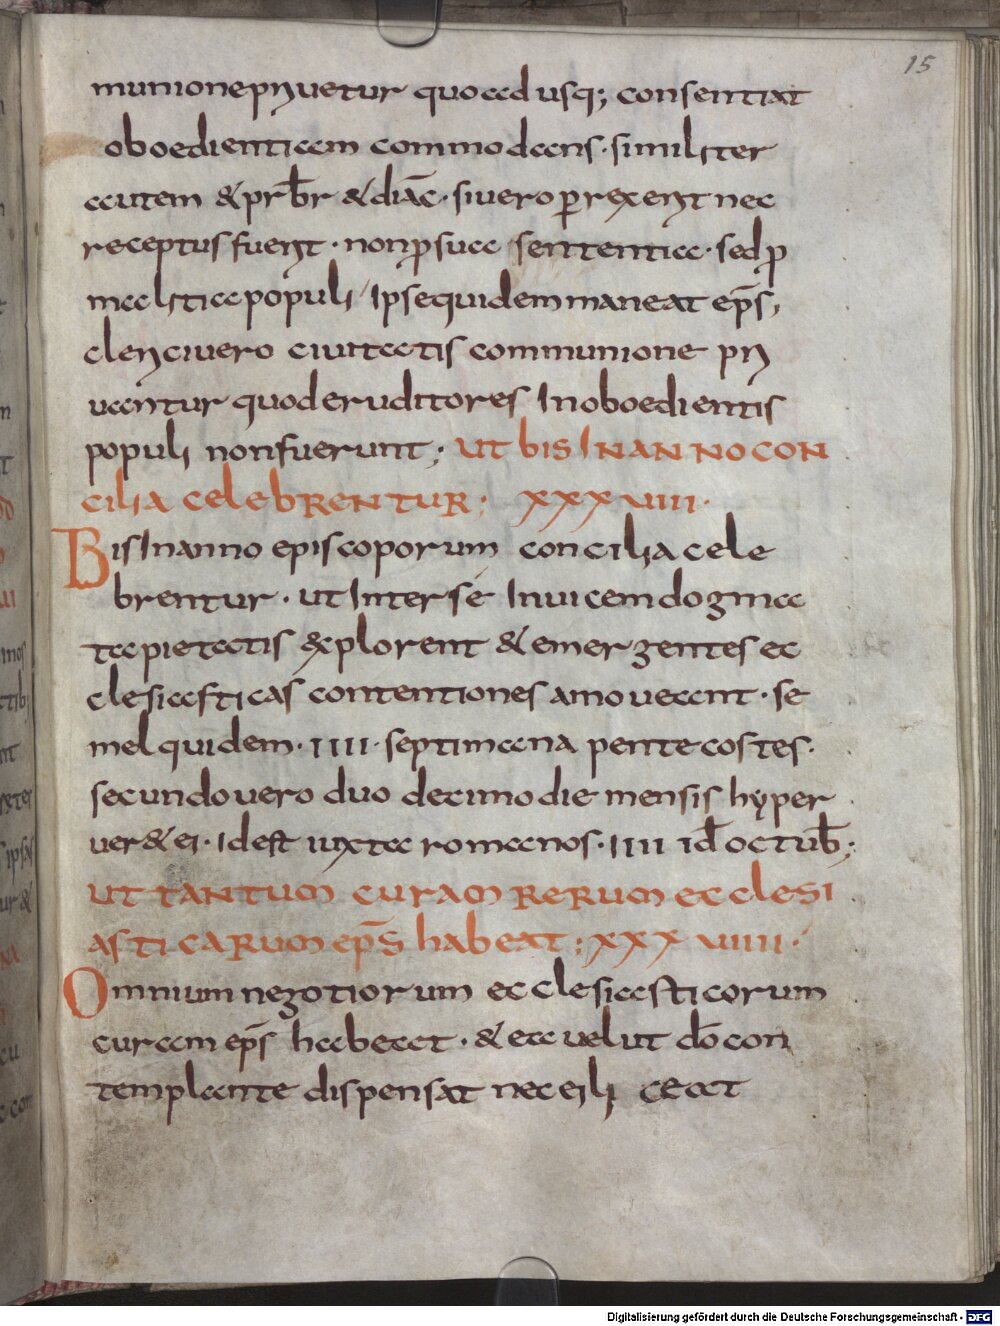 15
munione priuetur quoadusq; consentiat
oboedientiam commodans · similiter
autem & prb̄r & diāc · siuero ꝑrexerit nec
receptus fuerit · non ꝓ sua sententia · sed ꝓ
malitia populi ipse quidem maneat ep̄s;
cleri ciuero ciuitatis communione pri
uantur quod eruditores Inoboedientis
populi non fuerunt; UT bIS IN ANNO CON
CILIA CELEBRENTUR; XXXVIII ·
BisInanno episcoporum concilia cele
brentur · ut Inter se Inuicem dogma
ta pietatis explorent & emergentes ec
clesiasticas contentiones amoueant · se
mel quidem · IIII · septimana pentecostes ·
secundo uero duodecimo die mensis hyper
uer&ei · Id est iuxta romanos · IIII id̄ octub̄;
UT TANTUM CURAM RERUM ECCLESI
ASTICARUM ep̄S habeat; XXXVIIII ·
Omnium negotiorum ecclesiasticorum
curam ep̄s habeat · & ea uelut dō con
templante dispensat nec ei li ceat
Digitalisierung gefördert durch die Deutsche Forschungsgemeinschaft - DFG